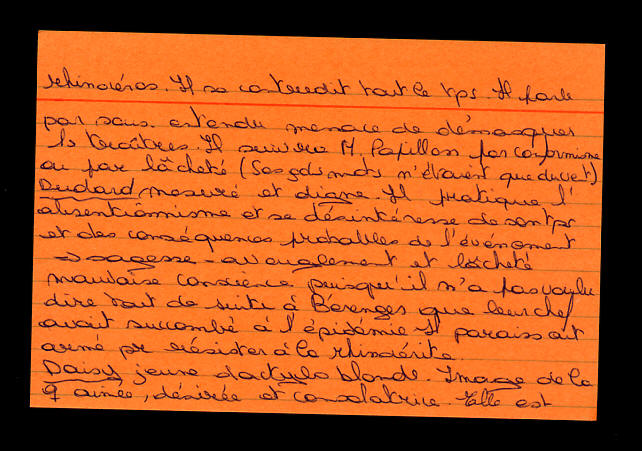 rhinocéros. Il se contredit tout le tps. Il parle
par sous entendu menace de démasquer
ls traîtres. Il suivra M. Papillon par conformisme
ou par lâcheté (Ses gds mots n'étaient que du vent)
Dudard mesuré et digne. Il pratique l'
absentionnisme et se désintéresse de son tps
et des conséquences probables de l'événement
→ sagesse - aveuglement et lâcheté
mauvaise conscience puisqu'il n'a pas voulu
dire tout de suite à Bérenger que leur chef
avait succombé à l'épidémie Il paraissait
armé pr résister à la rhinérite.
Daisy jeune dactylo blonde. Image de la
♀ aimée, désirée et consolatrice. Elle est